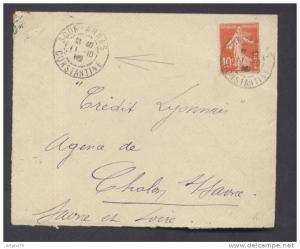 CONSTANTINE
10
CONSTANTINE
Crédit Lyonnais
Agence de
Chalon s/ Saône
Saône et Loire